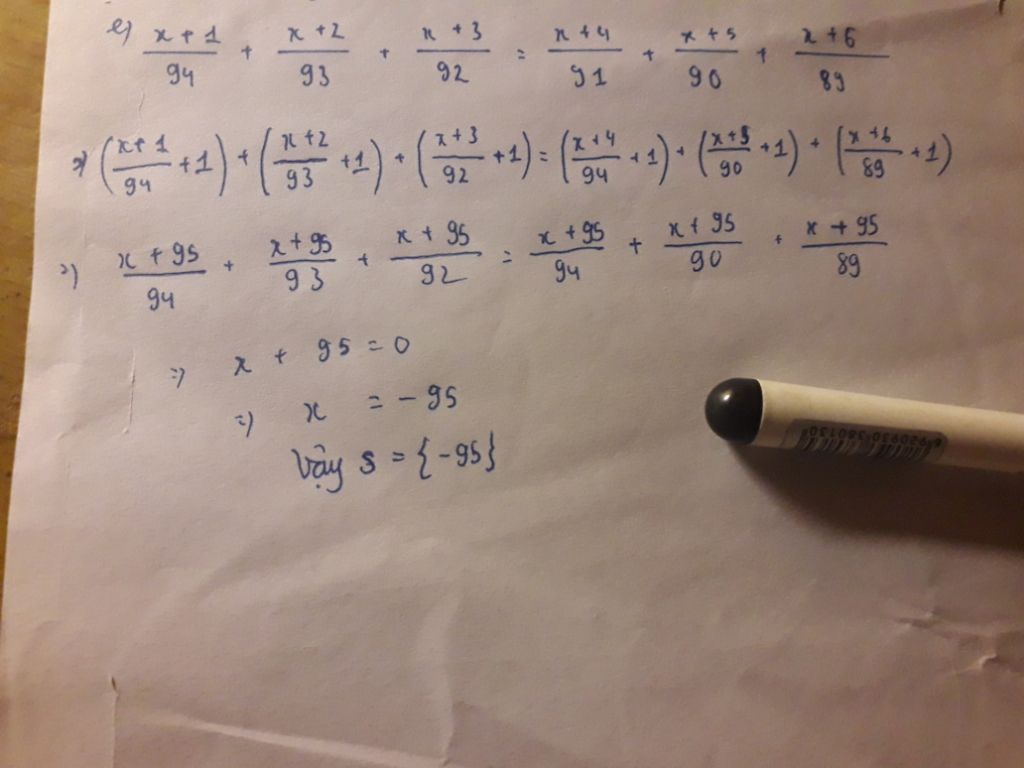 e) (x + 1)/94 + (x + 2)/93 + (x + 3)/92 = (x + 4)/91 + (x + 5)/90 + (x + 6)/89
=) ((x + 1)/94 + 1) + ((x + 2)/93 + 1) + ((x + 3)/92 + 1) = ((x + 4)/94 + 1) + ((x + 5)/90 + 1) + ((x + 6)/89 + 1)
=) (x + 95)/94 + (x + 95)/93 + (x + 95)/92 = (x + 95)/94 + (x + 95)/90 + (x + 95)/89
=) x + 95 = 0
=) x = - 95
Vậy S = {-95}
6920930 380130